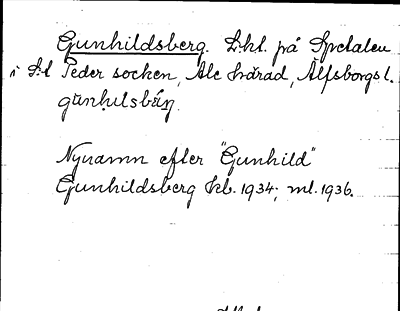 Gunhildsberg. L:ht. på Spetalen
i S:t Peder socken, Ale härad, Älfsborgs l.
gŭnhulsbärj.
Nynamn efter "Gunhild"
Gunhildsberg kb. 1934; ml. 1936.